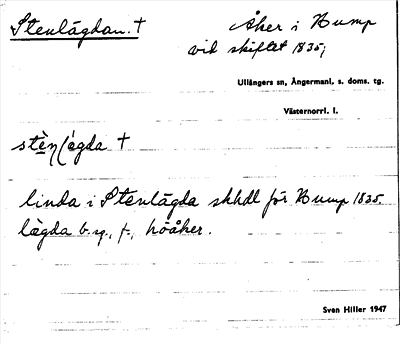 Stenlägdan. †
Åker i Bump
vid skiftet 1835;
Ullångers sn, Ångermanl. s. doms. tg.
Västernorrl. l.
stèn(lägda †
linda i Stenlägda skhdl för Bump 1835.
lägda b. sg., f., höåker.
Sven Hiller 1947